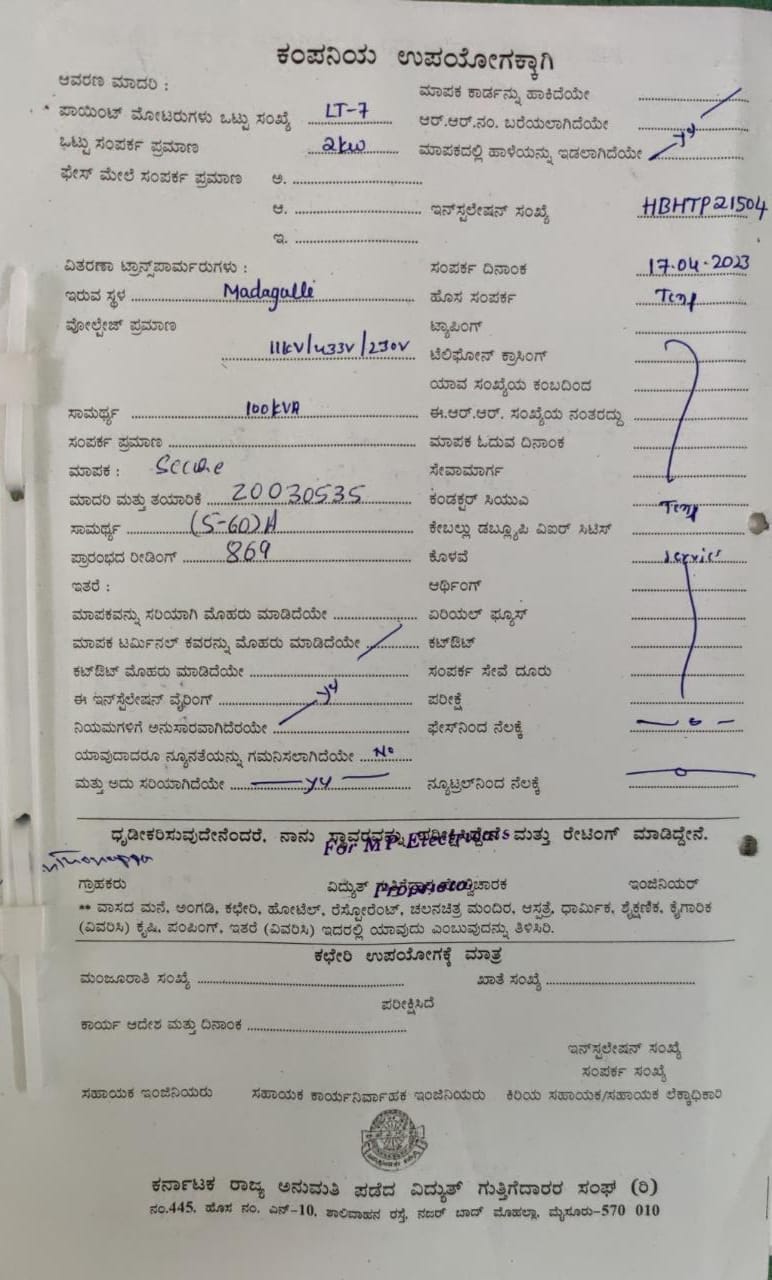 ಕಂಪನಿಯ ಉಪಯೋಗಕ್ಕಾಗಿ
ಆವರಣ ಮಾದರಿ :
* ಪಾಯಿಂಟ್ ಮೋಟರುಗಳು ಒಟ್ಟು ಸಂಖ್ಯೆ LT-7
ಒಟ್ಟು ಸಂಪರ್ಕ ಪ್ರಮಾಣ 2kw
ಫೇಸ್ ಮೇಲೆ ಸಂಪರ್ಕ ಪ್ರಮಾಣ ಅ.
ಆ.
ಇ.
ಮಾಪಕ ಕಾರ್ಡನ್ನು ಹಾಕಿದೆಯೇ
ಆರ್.ಆರ್.ನಂ. ಬರೆಯಲಾಗಿದೆಯೇ
ಮಾಪಕದಲ್ಲಿ ಹಾಳೆಯನ್ನು ಇಡಲಾಗಿದೆಯೇ
ಇನ್‌ಸ್ಟಲೇಷನ್ ಸಂಖ್ಯೆ HBHTP21504
ವಿತರಣಾ ಟ್ರಾನ್ಸ್‌ಪಾರ್ಮರುಗಳು :
ಇರುವ ಸ್ಥಳ Madagalli
ವೋಲ್ಟೇಜ್ ಪ್ರಮಾಣ
11kV/433V/230V
ಸಾಮರ್ಥ್ಯ 100kVA
ಸಂಪರ್ಕ ಪ್ರಮಾಣ
ಮಾಪಕ : Secure
ಮಾದರಿ ಮತ್ತು ತಯಾರಿಕೆ 20030535
ಸಾಮರ್ಥ್ಯ (5-60)A
ಪ್ರಾರಂಭದ ರೀಡಿಂಗ್ 869
ಇತರೆ :
ಮಾಪಕವನ್ನು ಸರಿಯಾಗಿ ಮೊಹರು ಮಾಡಿದೆಯೇ
ಮಾಪಕ ಟರ್ಮಿನಲ್ ಕವರನ್ನು ಮೊಹರು ಮಾಡಿದೆಯೇ
ಕಟ್‌ಔಟ್ ಮೊಹರು ಮಾಡಿದೆಯೇ
ಈ ಇನ್‌ಸ್ಟೆಲೇಷನ್ ವೈರಿಂಗ್
ನಿಯಮಗಳಿಗೆ ಅನುಸಾರವಾಗಿದೆರಯೇ
ಯಾವುದಾದರೂ ನ್ಯೂನತೆಯನ್ನು ಗಮನಿಸಲಾಗಿದೆಯೇ No
ಮತ್ತು ಅದು ಸರಿಯಾಗಿದೆಯೇ
ಸಂಪರ್ಕ ದಿನಾಂಕ 17.04.2023
ಹೊಸ ಸಂಪರ್ಕ Temp
ಟ್ಯಾಪಿಂಗ್
ಟೆಲಿಫೋನ್ ಕ್ರಾಸಿಂಗ್
ಯಾವ ಸಂಖ್ಯೆಯ ಕಂಬದಿಂದ
ಈ.ಆರ್.ಆರ್. ಸಂಖ್ಯೆಯ ನಂತರದ್ದು
ಮಾಪಕ ಓದುವ ದಿನಾಂಕ
ಸೇವಾಮಾರ್ಗ
ಕಂಡಕ್ಟರ್ ಸಿಯುಎ Temp
ಕೇಬಲ್ಲು ಡಬ್ಲ್ಯೂಪಿ ವಿಐರ್ ಸಿಟಿಸ್
ಕೊಳವೆ service
ಆರ್ಥಿಂಗ್
ಏರಿಯಲ್ ಫ್ಯೂಸ್
ಕಟ್‌ಔಟ್
ಸಂಪರ್ಕ ಸೇವೆ ದೂರು
ಪರೀಕ್ಷೆ
ಫೇಸ್‌ನಿಂದ ನೆಲಕ್ಕೆ — 0 —
ನ್ಯೂಟ್ರಲ್‌ನಿಂದ ನೆಲಕ್ಕೆ — 0 —
ಧೃಡೀಕರಿಸುವುದೇನೆಂದರೆ, ನಾನು ಸ್ಥಾವರವನ್ನು ಪರೀಕ್ಷಿಸಿದ್ದೇನೆ ಮತ್ತು ರೇಟಿಂಗ್ ಮಾಡಿದ್ದೇನೆ.
For M P Electricals
ಗ್ರಾಹಕರು ವಿದ್ಯುತ್ ಗುತ್ತಿಗೆದಾರ ಮೇಲ್ವಿಚಾರಕ ಇಂಜಿನಿಯರ್
Proprietor
** ವಾಸದ ಮನೆ, ಅಂಗಡಿ, ಕಛೇರಿ, ಹೋಟೆಲ್, ರೆಸ್ಟೋರೆಂಟ್, ಚಲನಚಿತ್ರ ಮಂದಿರ, ಆಸ್ಪತ್ರೆ, ಧಾರ್ಮಿಕ, ಶೈಕ್ಷಣಿಕ, ಕೈಗಾರಿಕ
(ವಿವರಿಸಿ) ಕೃಷಿ, ಪಂಪಿಂಗ್, ಇತರೆ (ವಿವರಿಸಿ) ಇದರಲ್ಲಿ ಯಾವುದು ಎಂಬುವುದನ್ನು ತಿಳಿಸಿರಿ.
ಕಛೇರಿ ಉಪಯೋಗಕ್ಕೆ ಮಾತ್ರ
ಮಂಜೂರಾತಿ ಸಂಖ್ಯೆ ಖಾತೆ ಸಂಖ್ಯೆ
ಪರೀಕ್ಷಿಸಿದೆ
ಕಾರ್ಯ ಆದೇಶ ಮತ್ತು ದಿನಾಂಕ
ಇನ್‌ಸ್ಟಲೇಷನ್ ಸಂಖ್ಯೆ
ಸಂಪರ್ಕ ಸಂಖ್ಯೆ
ಸಹಾಯಕ ಇಂಜಿನಿಯರು ಸಹಾಯಕ ಕಾರ್ಯನಿರ್ವಾಹಕ ಇಂಜಿನಿಯರು ಕಿರಿಯ ಸಹಾಯಕ/ಸಹಾಯಕ ಲೆಕ್ಕಾಧಿಕಾರಿ
ಕರ್ನಾಟಕ ರಾಜ್ಯ ಅನುಮತಿ ಪಡೆದ ವಿದ್ಯುತ್ ಗುತ್ತಿಗೆದಾರರ ಸಂಘ (ರಿ)
ನಂ.445, ಹೊಸ ನಂ. ಎನ್-10, ಶಾಲಿವಾಹನ ರಸ್ತೆ, ನಜರ್ ಬಾದ್ ಮೊಹಲ್ಲಾ, ಮೈಸೂರು-570 010